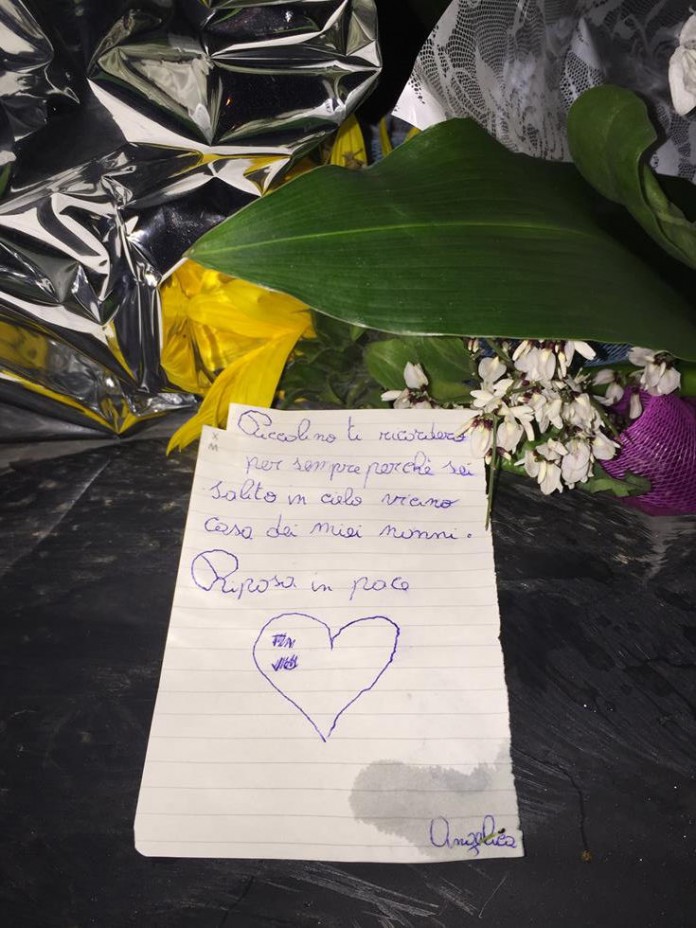 Piccolino ti ricorderò
per sempre perchè sei
salito in cielo vicino
casa dei miei nonni.
Riposa in pace
Angelica